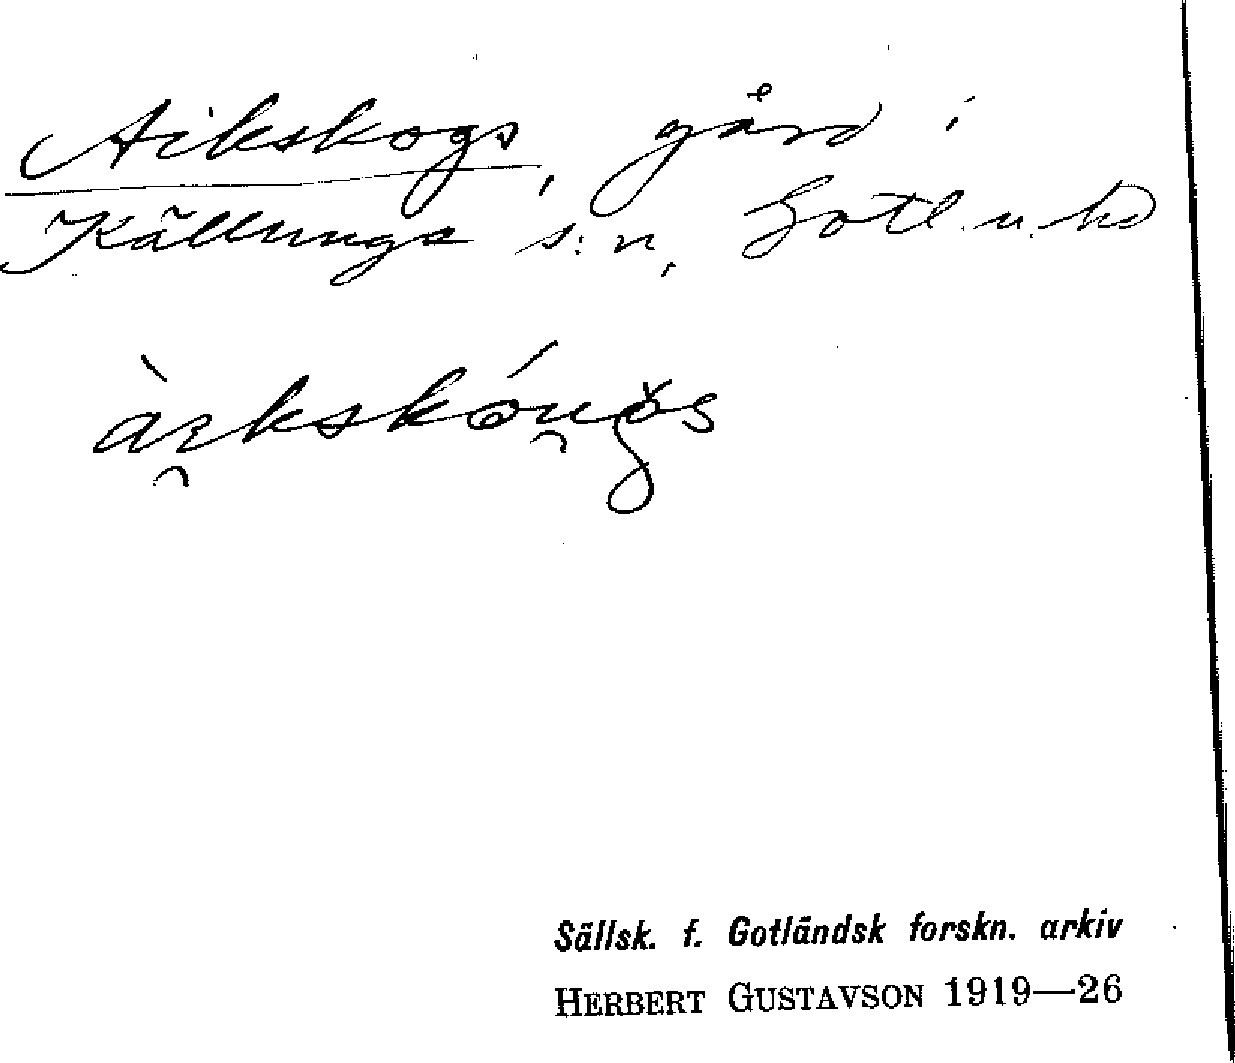 Aikskogs, gård i
Källunge s:n, Gotl. n. hd
Sällsk. f. Gotländsk forskn. arkiv
HERBERT GUSTAVSON 1919—26